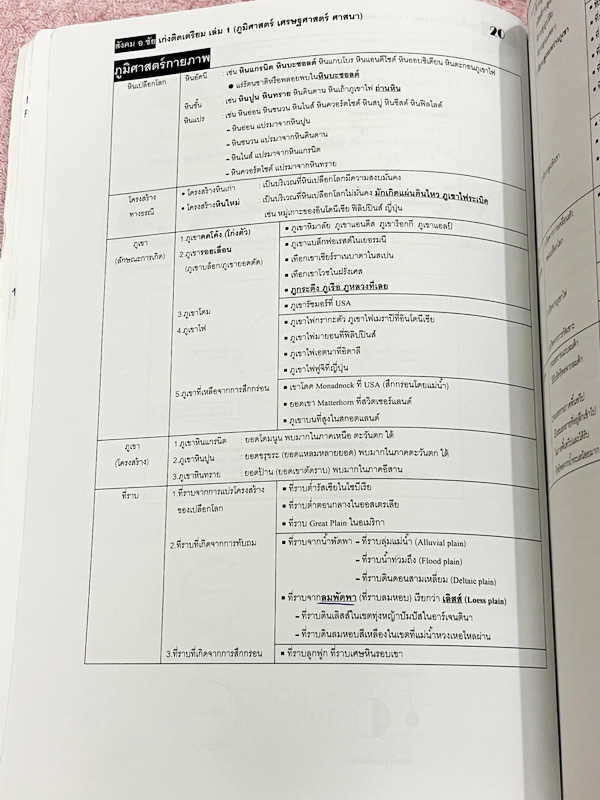 สังคม อ.ชัย เก่งติดเตรียม เล่ม 1 (ภูมิศาสตร์ เศรษฐศาสตร์ ศาสนา)
20
ภูมิศาสตร์กายภาพ
หินเปลือกโลก
หินอัคนี : เช่น หินแกรนิต หินบะซอลต์ หินแกบโบร หินแอนดีไซต์ หินออบซิเดียน หินตะกอนภูเขาไฟ
• แร่รัตนชาติหรือพลอยพบในหินบะซอลต์
หินชั้น : เช่น หินปูน หินทราย หินดินดาน หินเถ้าภูเขาไฟ ถ่านหิน
หินแปร : เช่น หินอ่อน หินชนวน หินไนส์ หินควอร์ตไซต์ หินสบู่ หินชีสต์ หินฟิลไลต์
– หินอ่อน แปรมาจากหินปูน
– หินชนวน แปรมาจากหินดินดาน
– หินไนส์ แปรมาจากหินแกรนิต
– หินควอร์ตไซต์ แปรมาจากหินทราย
โครงสร้าง
ทางธรณี
• โครงสร้างหินเก่า : เป็นบริเวณที่หินเปลือกโลกมีความสงบมั่นคง
• โครงสร้างหินใหม่ : เป็นบริเวณที่หินเปลือกโลกไม่มั่นคง มักเกิดแผ่นดินไหว ภูเขาไฟระเบิด
เช่น หมู่เกาะของอินโดนีเซีย ฟิลิปปินส์ ญี่ปุ่น
ภูเขา
(ลักษณะการเกิด)
1.ภูเขาคดโค้ง (โก่งตัว)
▪ ภูเขาหิมาลัย ภูเขาแอนดีส ภูเขาร็อกกี ภูเขาแอลป์
2.ภูเขารอยเลื่อน
(ภูเขาบล็อก/ภูเขายอดตัด)
▪ ภูเขาแบล็กฟอเรสต์ในเยอรมนี
▪ เทือกเขาเซียร์ราเนบาดาในสเปน
▪ เทือกเขาโวชในฝรั่งเศส
▪ ภูกระดึง ภูเรือ ภูหลวงที่เลย
3.ภูเขาโดม
▪ ภูเขารัชมอร์ที่ USA
4.ภูเขาไฟ
▪ ภูเขาไฟกรากะตัว ภูเขาไฟเมราปีที่อินโดนีเซีย
▪ ภูเขาไฟมายอนที่ฟิลิปปินส์
▪ ภูเขาไฟเอตนาที่อิตาลี
▪ ภูเขาไฟฟูจิที่ญี่ปุ่น
5.ภูเขาที่เหลือจากการสึกกร่อน
▪ เขาโดด Monadnock ที่ USA (สึกกร่อนโดยแม่น้ำ)
▪ ยอดเขา Matterhorn ที่สวิตเซอร์แลนด์
▪ ภูเขาบนที่สูงในสกอตแลนด์
ภูเขา
(โครงสร้าง)
1.ภูเขาหินแกรนิต : ยอดโดมนูน พบมากในภาคเหนือ ตะวันตก ใต้
2.ภูเขาหินปูน : ยอดขรุขระ (ยอดแหลมหลายยอด) พบมากในภาคตะวันตก ใต้
3.ภูเขาหินทราย : ยอดป้าน (ยอดเขาตัดราบ) พบมากในภาคอีสาน
ที่ราบ
1.ที่ราบจากการแปรโครงสร้าง
ของเปลือกโลก
▪ ที่ราบต่ำรัสเซียในไซบีเรีย
▪ ที่ราบต่ำตอนกลางในออสเตรเลีย
▪ ที่ราบ Great Plain ในอเมริกา
2.ที่ราบที่เกิดจากการทับถม
▪ ที่ราบจากน้ำพัดพา – ที่ราบลุ่มแม่น้ำ (Alluvial plain)
– ที่ราบน้ำท่วมถึง (Flood plain)
– ที่ราบดินดอนสามเหลี่ยม (Deltaic plain)
▪ ที่ราบจากลมพัดพา (ที่ราบลมหอบ) เรียกว่า เลิสส์ (Loess plain)
– ที่ราบดินเลิสส์ในเขตทุ่งหญ้าปัมปัสในอาร์เจนตินา
– ที่ราบดินลมหอบสีเหลืองในเขตที่แม่น้ำหวงเหอไหลผ่าน
3.ที่ราบที่เกิดจากการสึกกร่อน
▪ ที่ราบลูกฟูก ที่ราบเศษหินรอบเขา